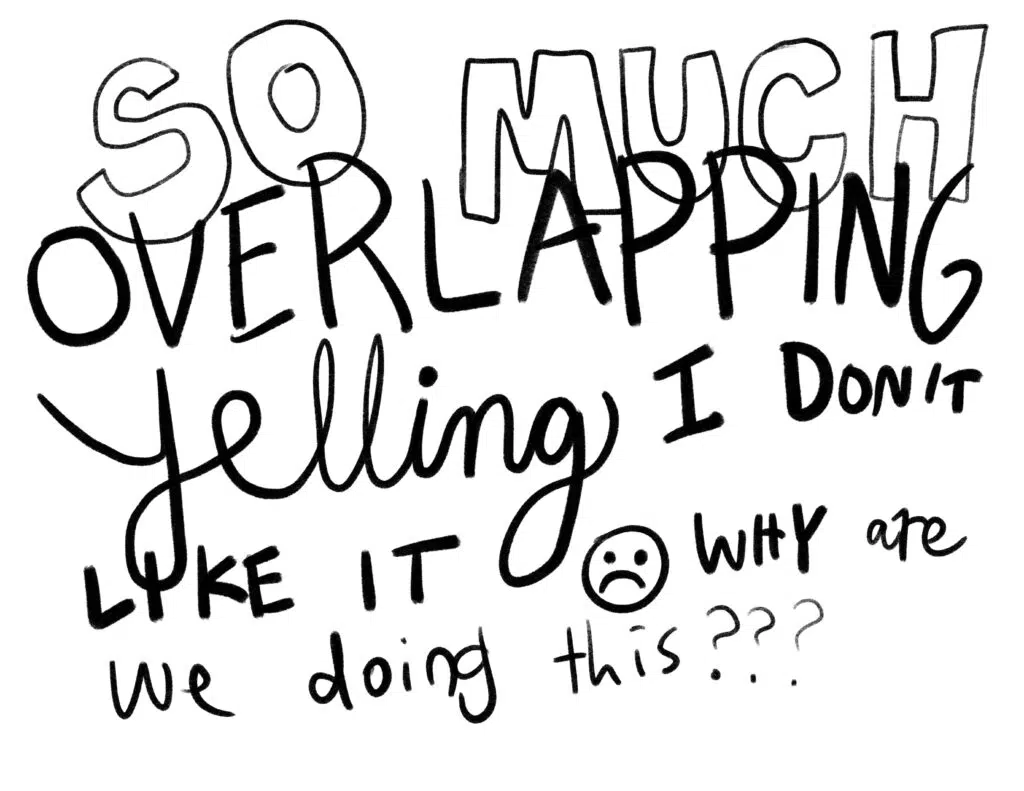 SO MUCH
OVERLAPPING
Yelling I DON'T
LIKE IT ☹ WHY are
we doing this???